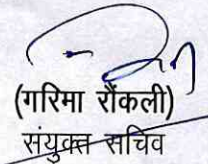 (गरिमा रौंकली)
संयुक्त सचिव